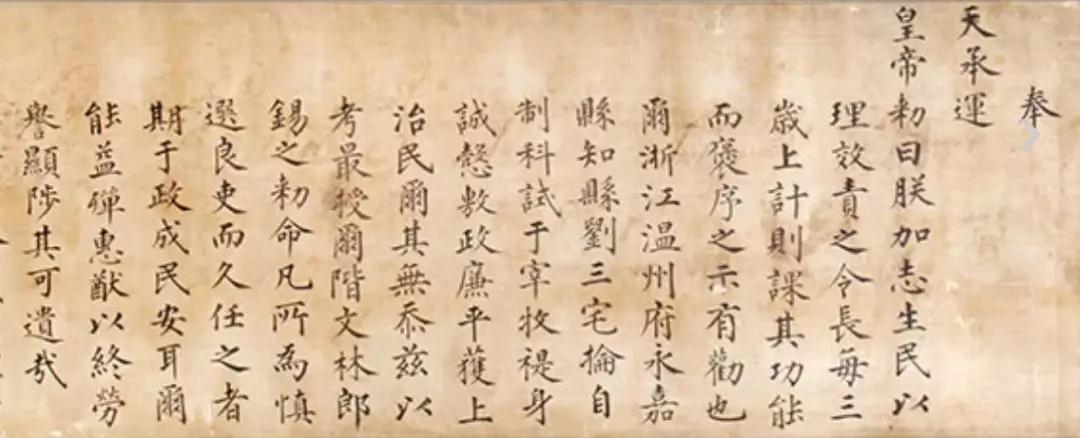 奉
天承運
皇帝勅曰朕加志生民以
理效責之令長每三
歲上計則課其功能
而褒序之示有勸也
爾浙江温州府永嘉
縣知縣劉三宅掄自
制科試于宰牧禔身
誠慤敷政廉平獲上
治民爾其無忝茲以
考最授爾階文林郎
錫之勅命凡所為慎
選良吏而久任之者
期于政成民安耳爾
能益殫惠猷以終勞
譽顯陟其可遺哉